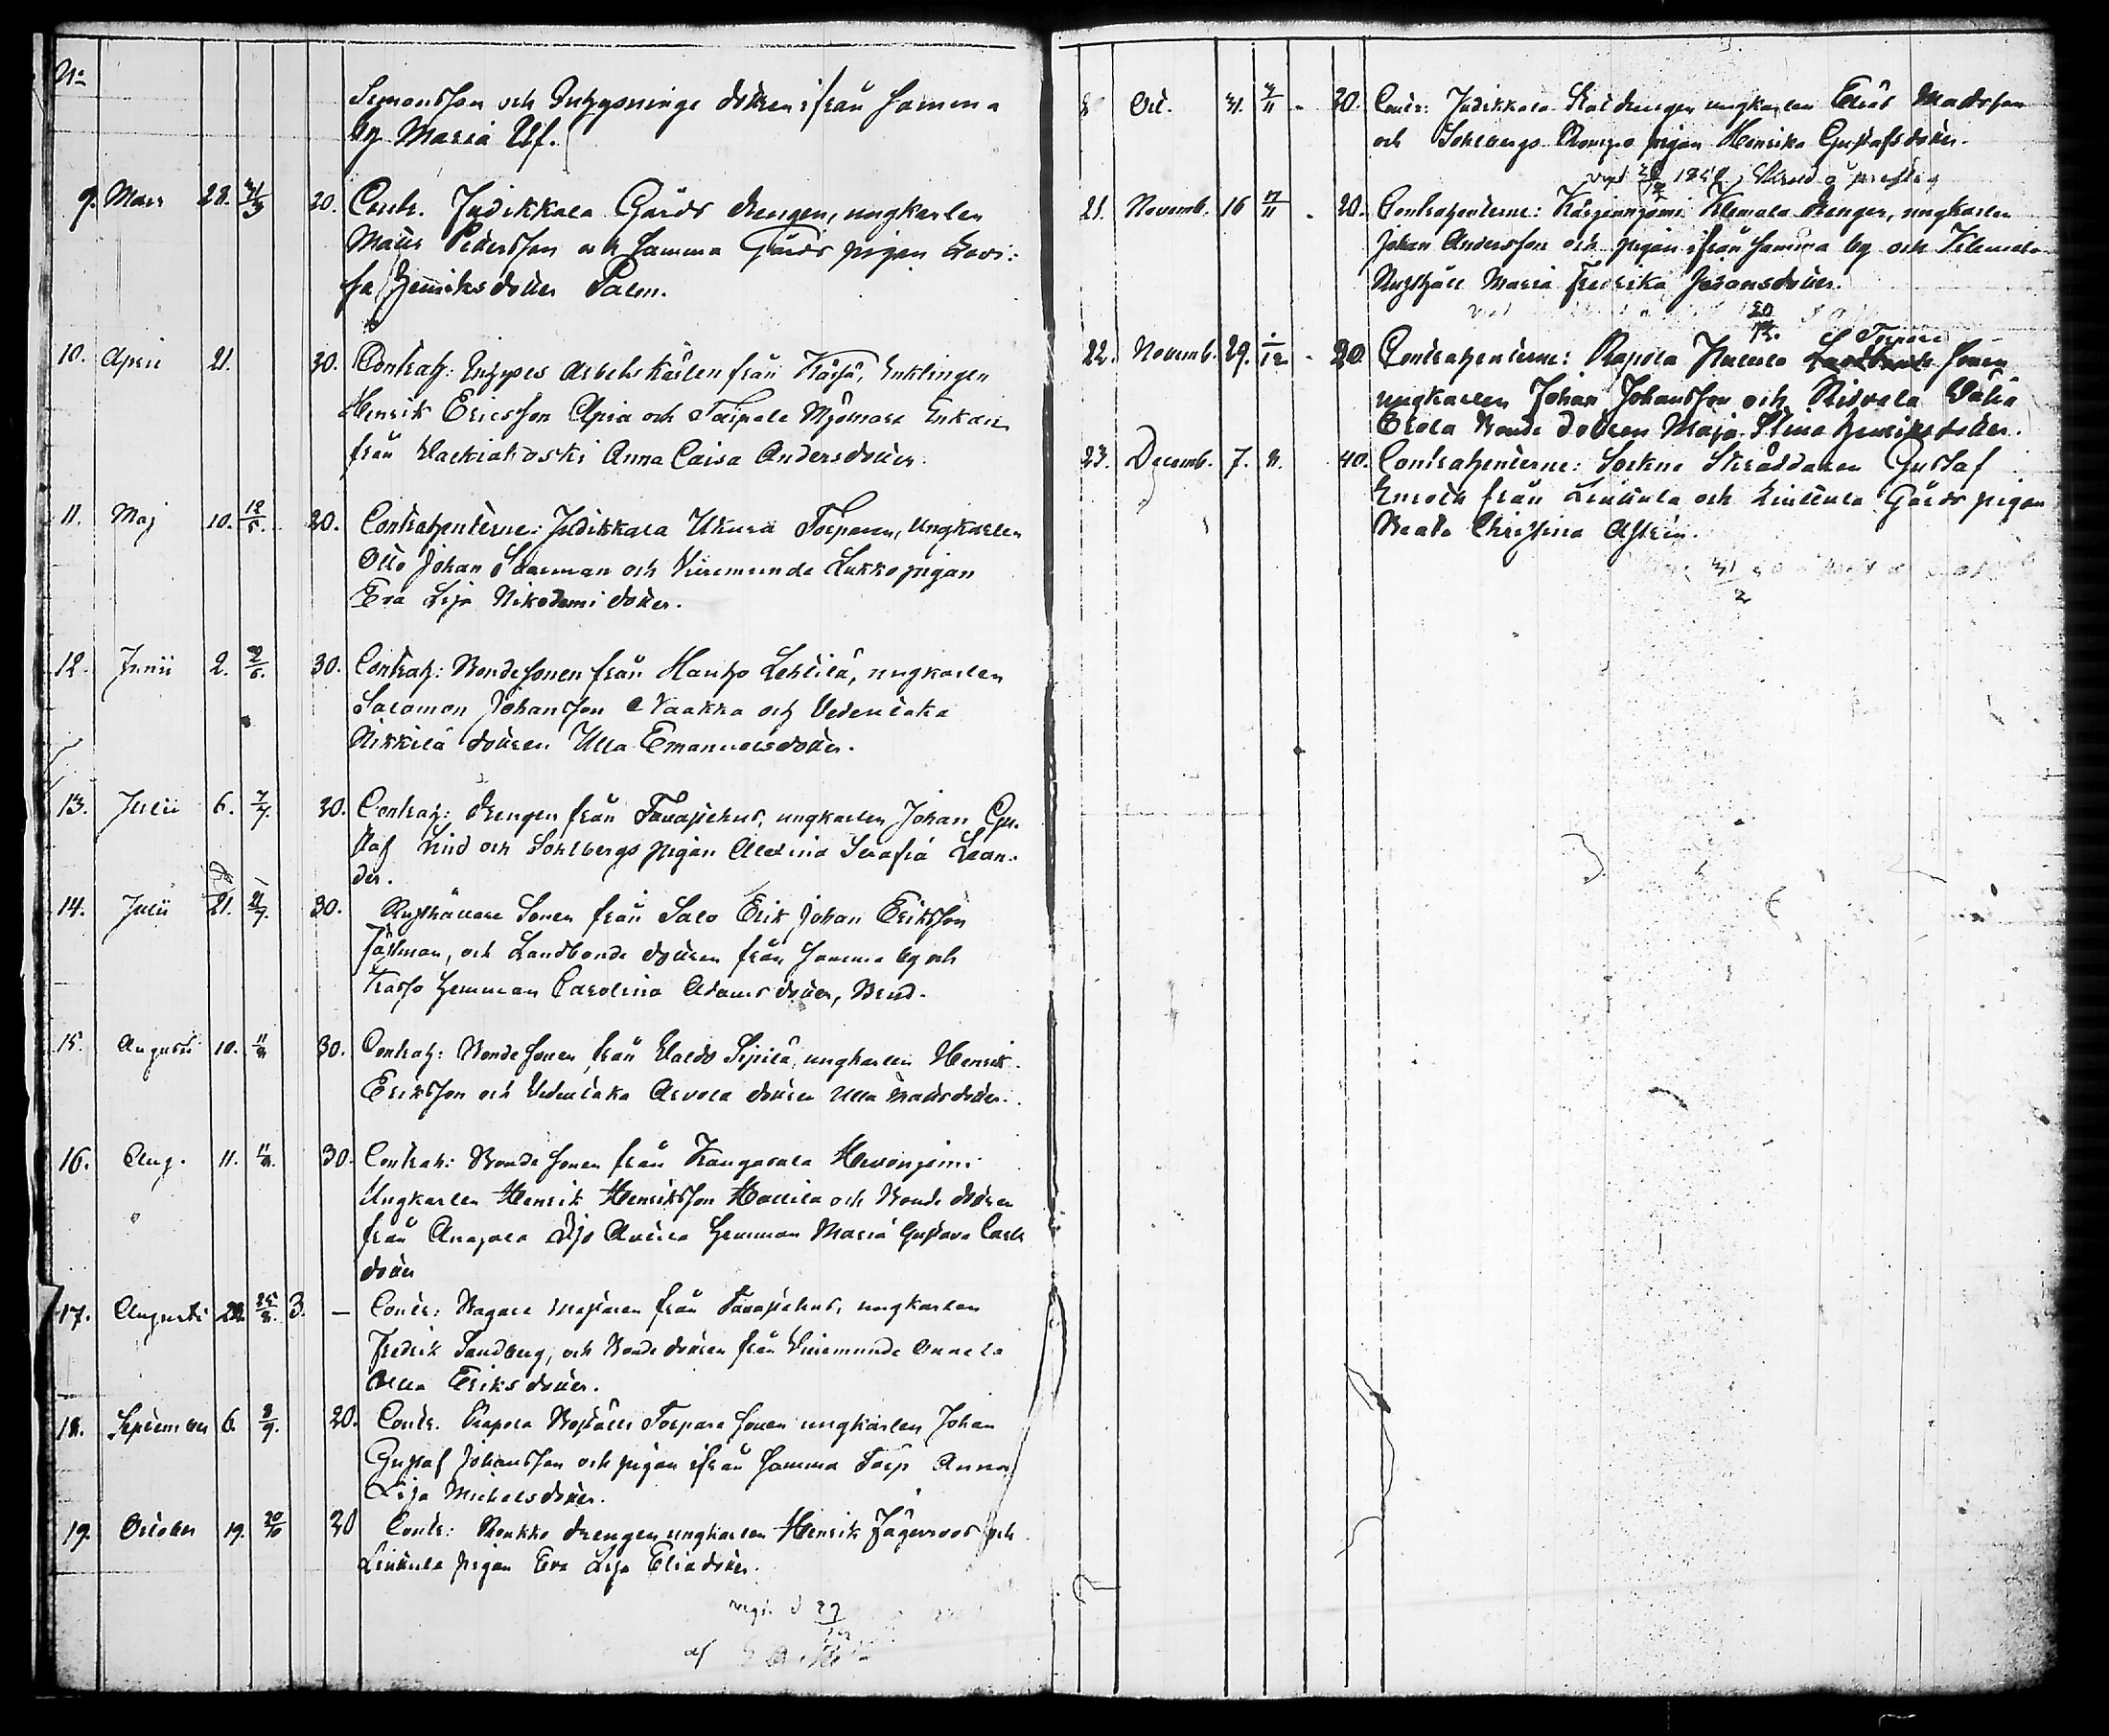 No
Simonsson och Inhysninge dottren ifrån samma
by Maria Ulf.
9. Mars 28. 31/3 20. Contr. Judikkala Gårds drengen, ungkarlen
Matts Pettersson och samma Gårds pigan Lovi:
sa Henriksdotter Palm.
10. April 21. 30. Contrah: Inhyses Arbetskarlen från Kärsä, Enklingen
Henrik Ericsson Apia och Taipale Mjölnare Enkan
från Walkiakoski Anna Caisa Andersdotter.
11. Maj 10. 12/5. 20. Contrahenterne: Judikkala Ukura Torparen, Ungkarlen
Otto Johan och Vieremunde Lukko pigan
Eva Lisa Nikodemi dotter.
12. Junii 2. 2/6. 30. Contrah: Bondesonen från Hauho Lehtilä, ungkarlen
Salomon Johansson Naakka och Vedentaka
Nikkilä dottren Ulla Emanuelsdotter.
13. Julii 6. 7/7. 20. Contrah: Drengen från Tavastehus, ungkarlen Johan Gu-
staf Lind och Sohlbergs pigan Alexina Serafia Lean-
der.
14. Julii 21. 21/7. 30. Rusthållare Sonen från Salo Erik Johan Eriksson
Fästman, och Landbonde dottren från samma by och
hemman Carolina Adamsdotter,
15. Augusti 10. 11/8 30. Contrah: Bonde sonen från Waldo Sipilä, ungkarlen Henrik
Eriksson och Vedentaka Arvola dottren Ulla Mattsdotter.
16. Aug. 11. 11/8. 30. Contrah: Bonde sonen från Kangasala Hevonjemi
Ungkarlen Henrik Henriksson Hallila och Bonde dottren
från Annjala Anttila hemman Maria Gustava Carls
dotter
17. Augusti 22. 25/8. 3. — Contr: Bagare mästaren från Tavastehus, ungkarlen
Fredrik Sandberg, och Bonde dottren från Vieremunde Annela
Ulla Eriksdotter.
18. September 6. 8/9. 20. Contr. Rapola Boställe Torpare sonen ungkarlen Johan
Gustaf Johansson och pigan ifrån samma Torp Anna
Lisa Michelsdotter.
19. October 19. 20/10 20 Contr: Roukko drengen ungkarlen Henrik Jägerroos och
Linttula pigan Eva Lisa Eliædotter.
af
Oct. 31. 4/11 - 20. Contr: Judikkala Stalldrengen ungkarlen Elias Mattsson
och Sohlbergs Kompo pigan Henrika Gustafsdotter.
21. Novemb. 16 17/11 - 20. Contrahenterne: Kärjenniemi Klemola Drengen, ungkarlen
Johan Andersson och pigan ifrån samma by och Klemola
Rusthåll Maria Fredrika Joransdotter.
22. Novemb. 29. 1/12 - 20. Contrahenterne: Rapola Hukula Torpare sonen
ungkarlen Johan Johansson och Ritvala
Erola Bonde dottren Maja Stina Henriksdotter.
23. Decemb. 7. 8. 40. Contrahenterne: Sockne Skräddaren Gustaf
från Linttula och Linttula Gårds pigan
Beata Christina
31/2